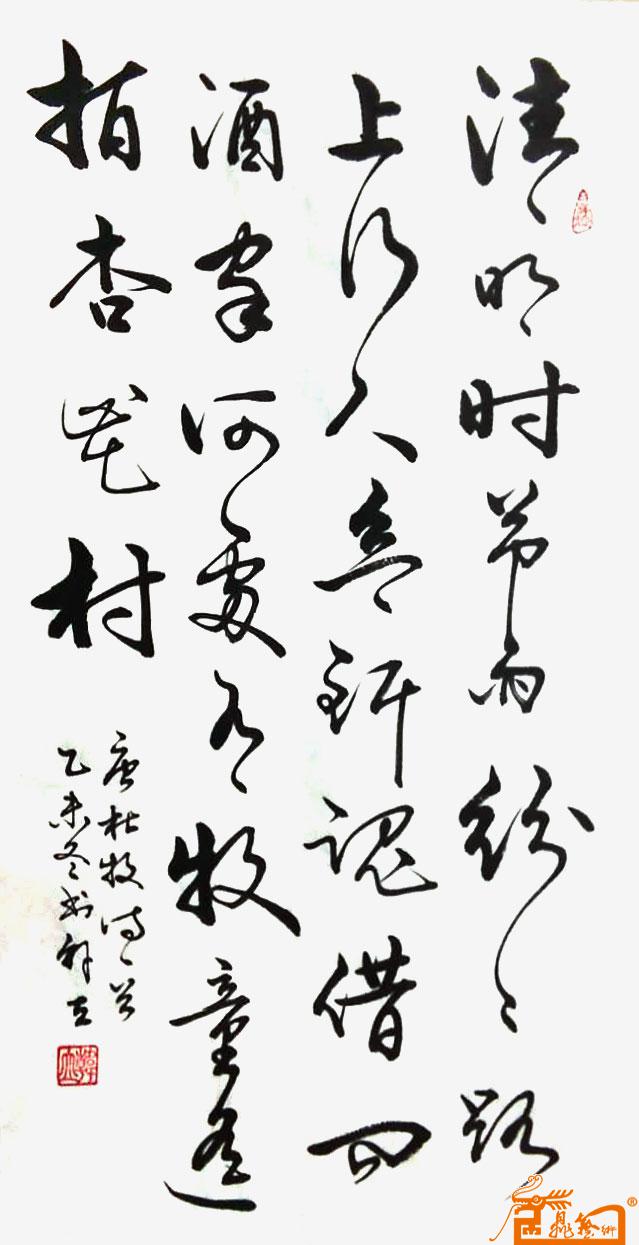 清明时节雨纷々路
上行人欲断魂借问
酒家何处有牧童遥
指杏花村
唐杜牧诗一首
乙未冬书